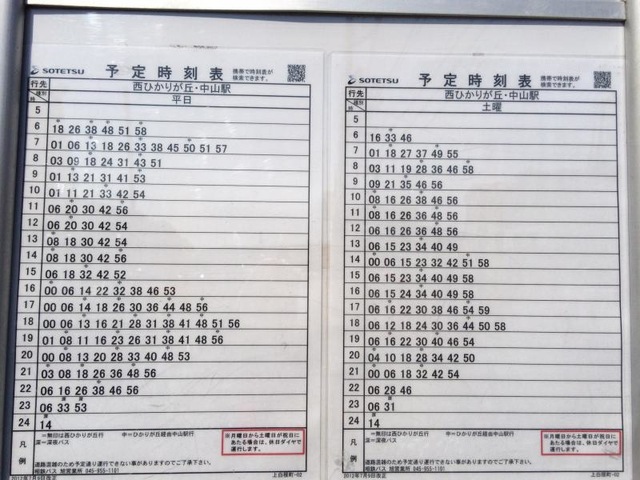 SOTETSU 予定時刻表 携帯で時刻表が
検索できます。
行先 西ひかりが丘・中山駅
種別 平日
時
5
6 18 26 38 48 51 58
7 01 06 13 18 26 33 38 45 50 51 57
8 03 09 18 24 31 43 51
9 01 13 21 31 41 53
10 01 11 21 33 42 54
11 06 20 30 42 56
12 06 20 30 42 54
13 08 18 30 42 54
14 08 18 30 42 56
15 06 18 32 42 52
16 00 06 14 22 32 38 46 53
17 00 06 14 18 26 30 36 44 48 56
18 00 06 13 16 21 28 31 38 41 48 51 56
19 01 08 11 16 23 26 31 38 41 48 56
20 00 08 13 20 28 33 40 48 53
21 03 08 18 26 36 48 56
22 06 16 26 38 46 56
23 06 33 53
24 14
凡例
=無印は西ひかりが丘行 中=ひかりが丘経由中山駅行
深=深夜バス
※月曜日から土曜日が祝日に
あたる場合は、休日ダイヤで
運行します。
道路混雑のため予定通り運行できない事がありますのでご了承下さい。
相鉄バス 旭営業所 045-955-1101
2012年7月9日改正
上白根町-02
SOTETSU 予定時刻表 携帯で時刻表が
検索できます。
行先 西ひかりが丘・中山駅
種別 土曜
時
5
6 16 33 46
7 01 18 27 37 49 55
8 03 11 19 28 36 46 58
9 09 21 35 46 56
10 08 16 26 38 46 56
11 08 16 26 36 48 56
12 06 26 36 36 48 56
13 06 15 23 34 40 49
14 00 06 15 23 32 42 51 58
15 06 15 23 34 40 49 58
16 06 15 24 34 40 49 58
17 06 16 22 30 38 46 54 59
18 06 12 18 24 30 36 44 50 58
19 06 16 22 30 40 46 54
20 04 10 18 28 34 42 50
21 00 06 18 32 42 54
22 06 28 46
23 06 31
24 14
凡例
=無印は西ひかりが丘行 中=ひかりが丘経由中山駅行
深=深夜バス
※月曜日から土曜日が祝日に
あたる場合は、休日ダイヤで
運行します。
道路混雑のため予定通り運行できない事がありますのでご了承下さい。
相鉄バス 旭営業所 045-955-1101
2012年7月9日改正
上白根町-02